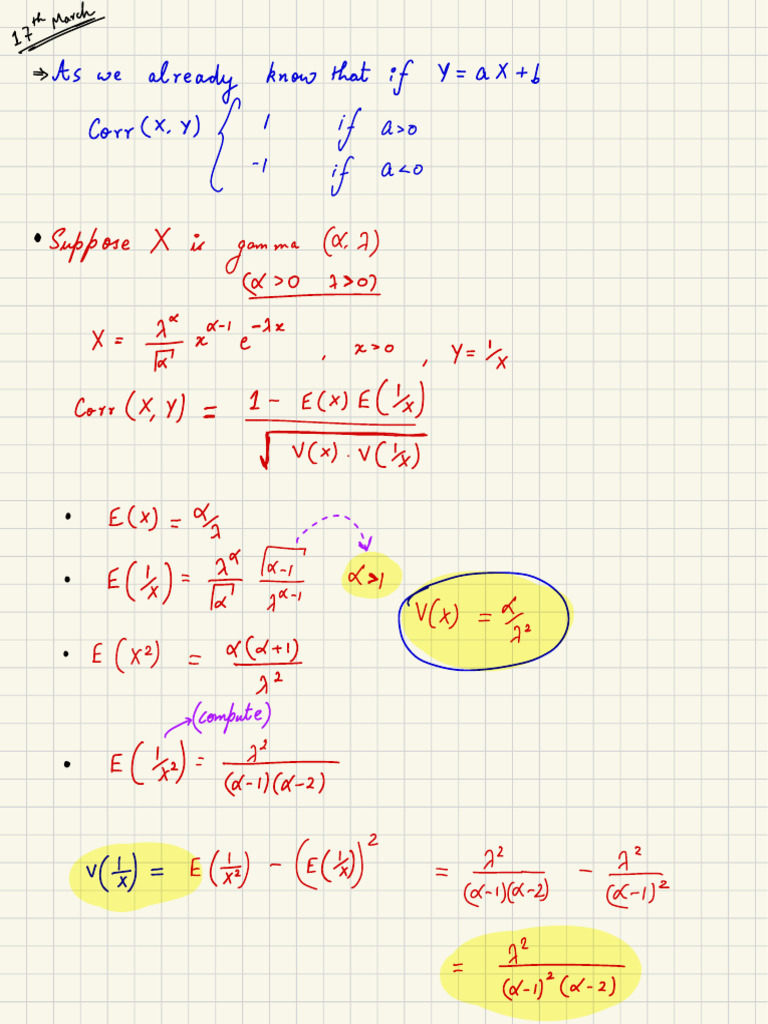 17th March
⇒ As we already know that if Y = aX + b
Corr(X, Y) { 1 if a>0
-1 if a<0
• Suppose X is gamma (α, λ)
(α>0 λ>0)
X = λ^α / Γα x^(α-1) e^(-λx) , x>0 , Y = 1/X
Corr(X, Y) = (1 - E(X) E(1/X)) / √(V(X) · V(1/X))
• E(X) = α/λ
• E(1/X) = λ^α / Γα Γα-1 / λ^(α-1) α>1
V(X) = α/λ²
• E(X²) = α(α+1) / λ²
(compute)
• E(1/X²) = λ² / (α-1)(α-2)
V(1/X) = E(1/X²) - (E(1/X))² = λ² / (α-1)(α-2) - λ² / (α-1)²
= λ² / (α-1)² (α-2)